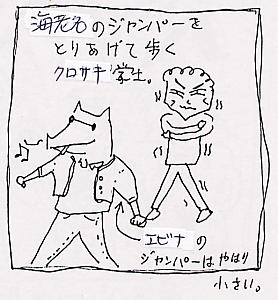 海老名のジャンパーを
とりあげて歩く
クロサキ学生。
エビナの
ジャンパーはやはり
小さい。